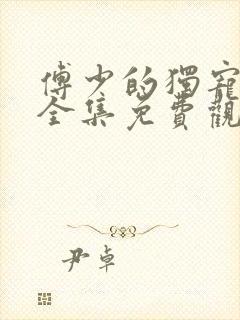 傅少的獨寵
全集免費觀
尹卓